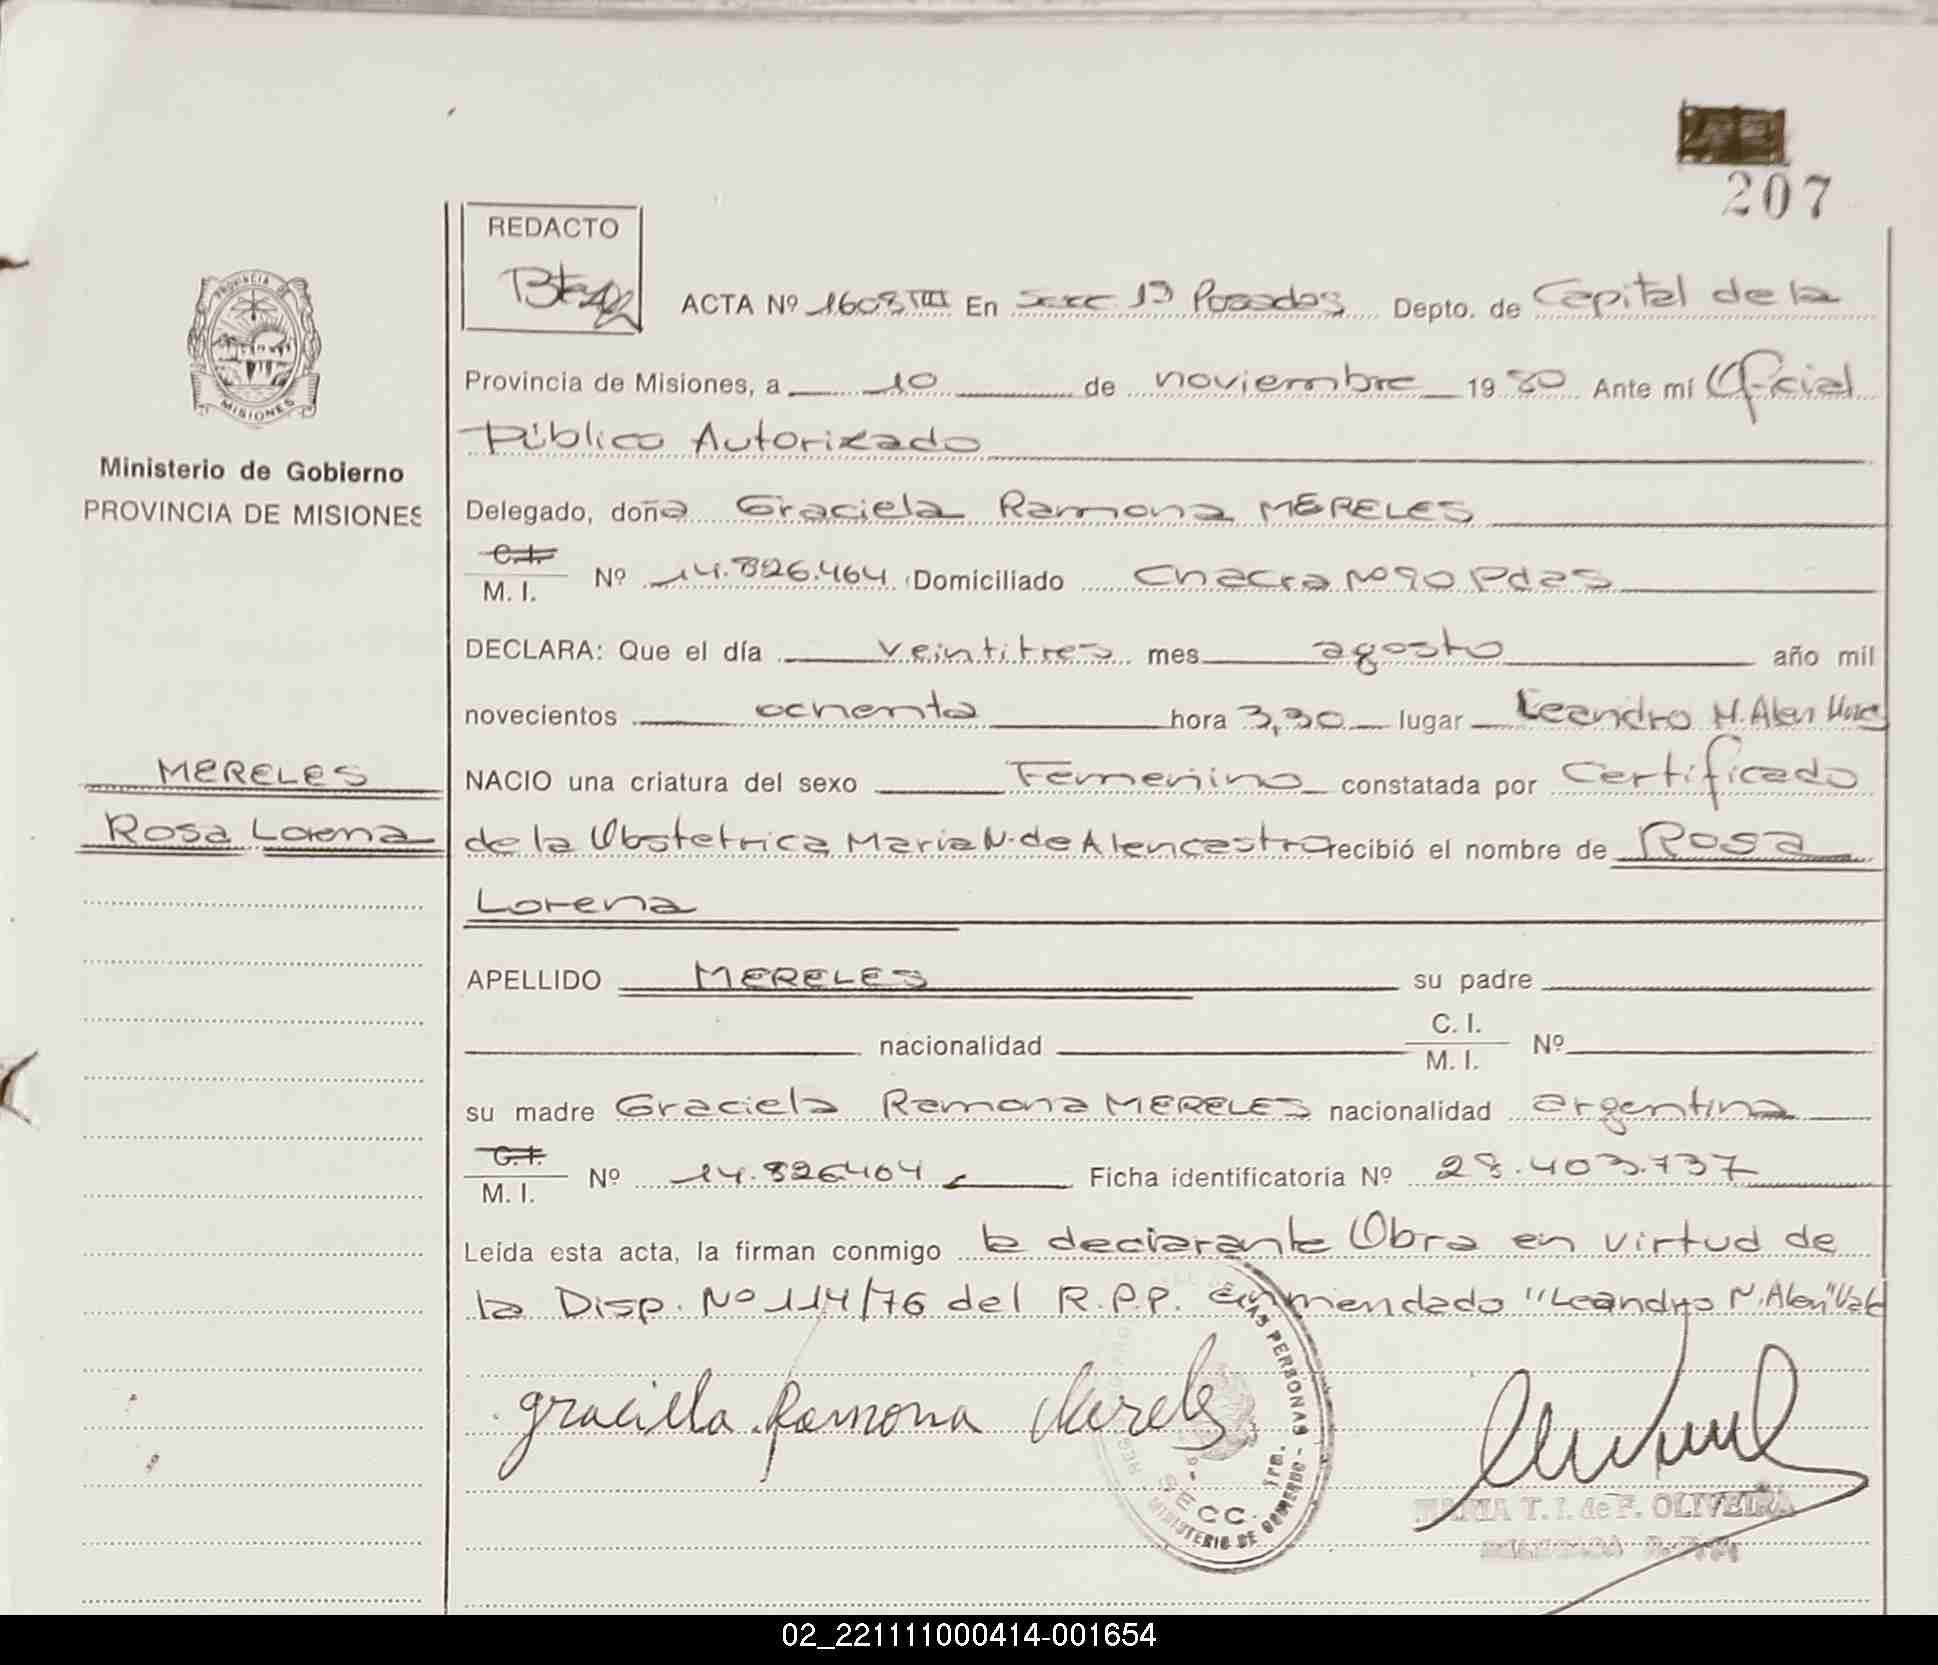 207
REDACTO
ACTA Nº 1608 VIII En Secc 1ª Posadas Depto. de Capital de la
Provincia de Misiones, a 10 de noviembre 1980 Ante mí Oficial
Público Autorizado
PROVINCIA DE
MISIONES
Ministerio de Gobierno
PROVINCIA DE MISIONES
Delegado, doña Graciela Ramona MERELES
C.I.
M. I. Nº 14.826.464 Domiciliado Chacra Nº 90 Pdas
DECLARA: Que el día veintitres mes agosto año mil
novecientos ochenta hora 3,30 lugar Leandro N. Alem
MERELES
Rosa Lorena
NACIO una criatura del sexo Femenino constatada por Certificado
de la Obstetrica Maria N. de Alencastro recibió el nombre de Rosa
Lorena
APELLIDO MERELES su padre
nacionalidad C. I.
M. I. Nº
su madre Graciela Ramona MERELES nacionalidad argentina
C.I.
M. I. Nº 14.826464 Ficha identificatoria Nº 28.403.737
Leída esta acta, la firman conmigo la declarante Obra en virtud de
la Disp. Nº 114/76 del R.P.P. Enmendado "Leandro N. Alem" Vale
graciela Ramona Mereles
LAS PERSONAS
SECC. 1ra.
MINISTERIO DE GOBIERNO
MARIA T. I. de F. OLIVEIRA
02_221111000414-001654